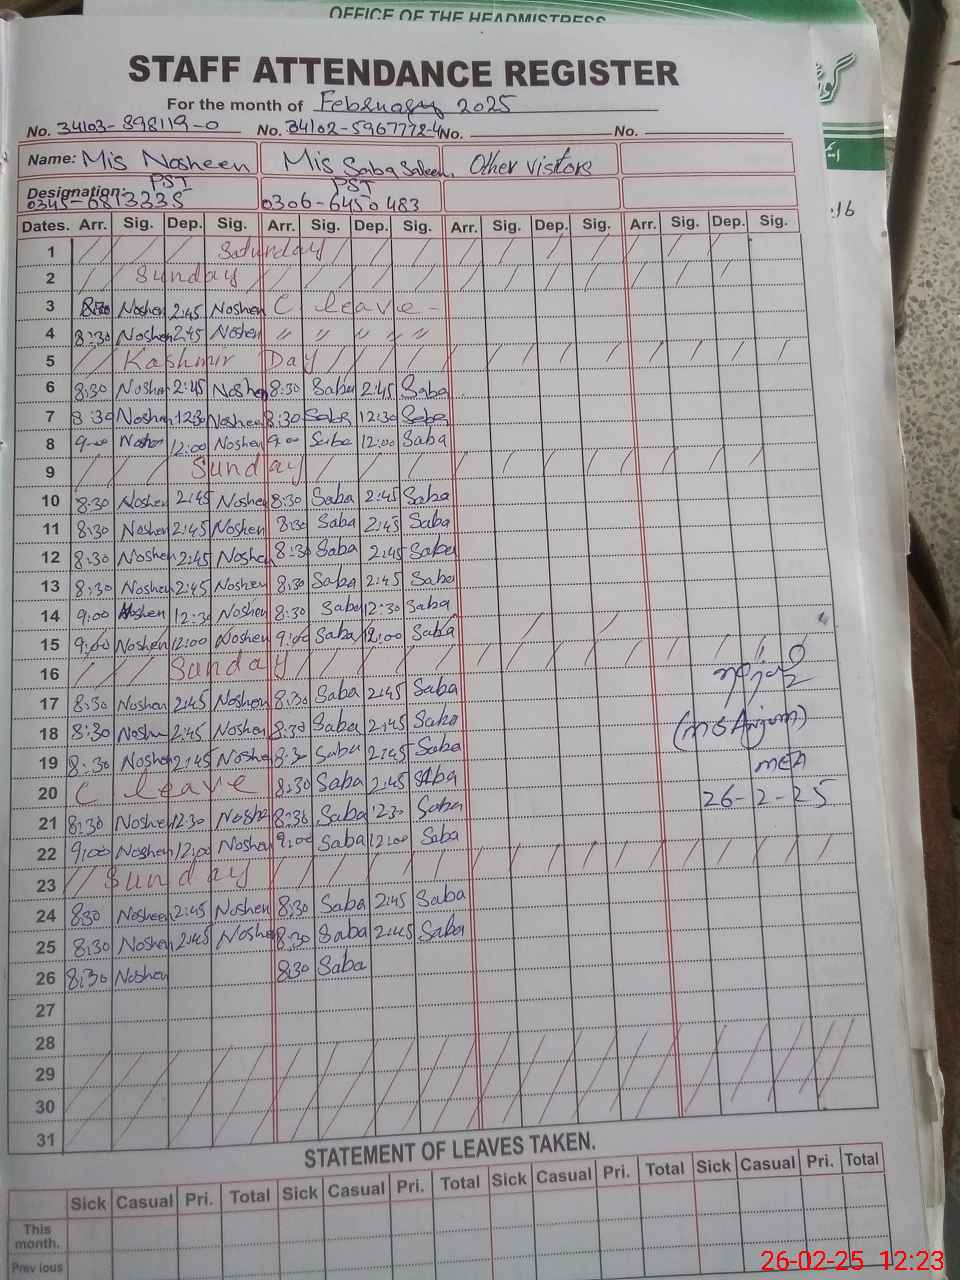 OFFICE OF THE HEADMISTRESS
STAFF ATTENDANCE REGISTER
For the month of February 2025
No. 34103-898119-0 No. 34102-5967772-4 No. No.
Name: Mis Nosheen Mis Saba Saleem Other visitors
Designation: PST PST
0345-6813335 0306-6450483
Dates. Arr. Sig. Dep. Sig. Arr. Sig. Dep. Sig. Arr. Sig. Dep. Sig. Arr. Sig. Dep. Sig.
1 Saturday
2 Sunday
3 8:30 Noshen 2:45 Noshen C leave -
4 8:30 Noshen 2:45 Noshen " " " " "
5 Kashmir Day
6 8:30 Noshen 2:45 Noshen 8:30 Saba 2:45 Saba
7 8:30 Noshen 12:30 Noshen 8:30 Saba 12:30 Saba
8 9:00 Noshen 12:00 Noshen 9:00 Saba 12:00 Saba
9 Sunday
10 8:30 Noshen 2:45 Noshen 8:30 Saba 2:45 Saba
11 8:30 Noshen 2:45 Noshen 8:30 Saba 2:45 Saba
12 8:30 Noshen 2:45 Noshen 8:30 Saba 2:45 Saba
13 8:30 Noshen 2:45 Noshen 8:30 Saba 2:45 Saba
14 9:00 Noshen 12:30 Noshen 8:30 Saba 12:30 Saba
15 9:00 Noshen 12:00 Noshen 9:00 Saba 12:00 Saba
16 Sunday
17 8:30 Noshen 2:45 Noshen 8:30 Saba 2:45 Saba
18 8:30 Noshen 2:45 Noshen 8:30 Saba 2:45 Saba
19 8:30 Noshen 2:45 Noshen 8:30 Saba 2:45 Saba
(MS Anjum)
MEA
20 C leave 8:30 Saba 2:45 Saba
26-2-25
21 8:30 Noshen 12:30 Noshen 8:30 Saba 12:30 Saba
22 9:00 Noshen 12:00 Noshen 9:00 Saba 12:00 Saba
23 Sunday
24 8:30 Nosheen 2:45 Noshen 8:30 Saba 2:45 Saba
25 8:30 Noshen 2:45 Noshen 8:30 Saba 2:45 Saba
26 8:30 Noshen 8:30 Saba
27
28
29
30
31
STATEMENT OF LEAVES TAKEN.
Sick Casual Pri. Total Sick Casual Pri. Total Sick Casual Pri. Total Sick Casual Pri. Total
This
month.
Previous
26-02-25 12:23